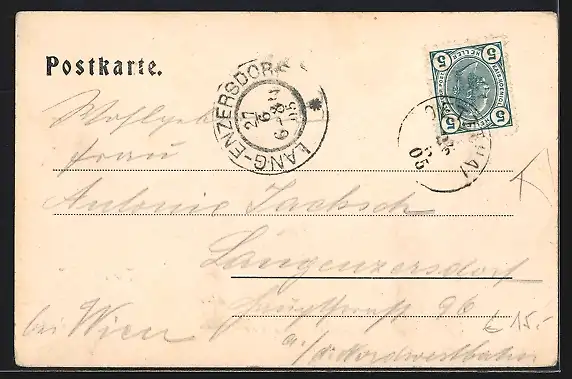 Postkarte.
LANG-ENZERSDORF
27
6
6-8
05
5 5
HELLER
5 5
05
Frau
Antonie Jacksch
Langenzersdorf
Hauptstrasse 96
bei Wien
a./d. Nordwestbahn
€ 15.-